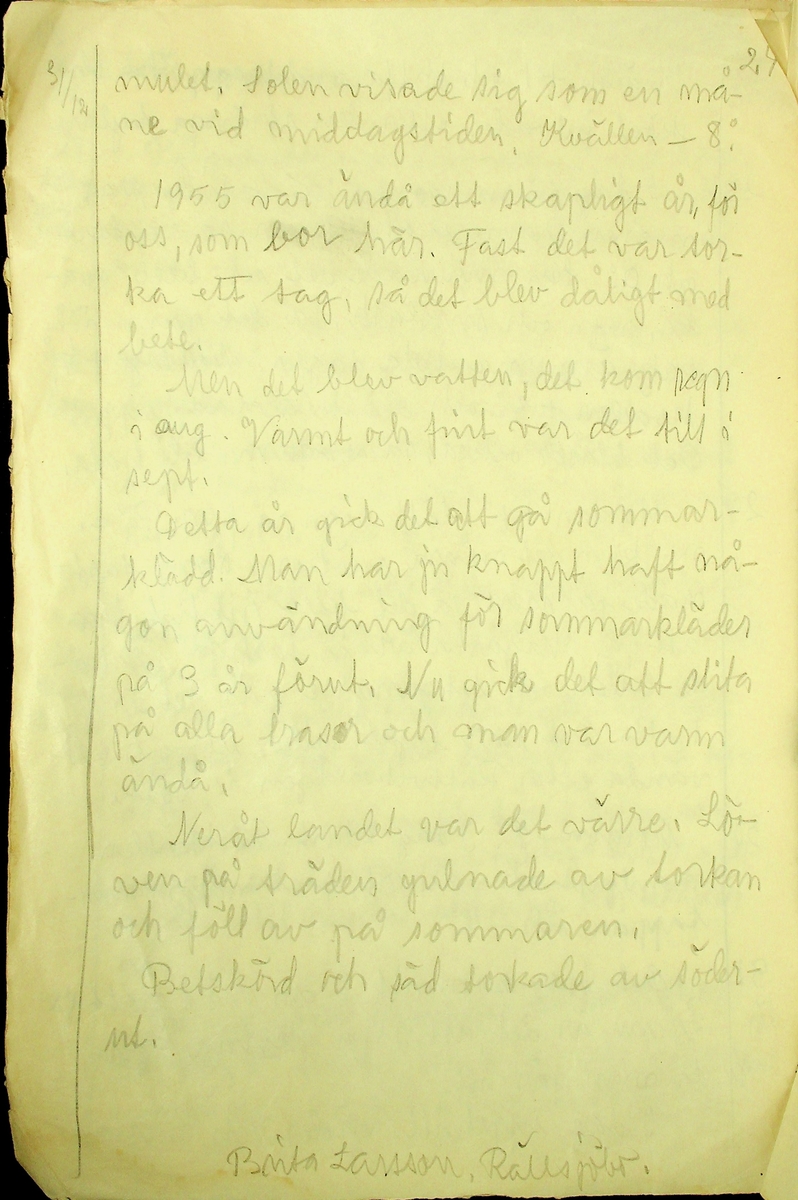 24
31/12 mulet. Solen visade sig som en må-
ne vid middagstiden. Kvällen – 8°.
1955 var ändå ett skapligt år, för
oss, som bor här. Fast det var tor-
ka ett tag, så det blev dåligt med
bete.
Men det blev vatten, det kom regn
i aug. Varmt och fint var det till i
sept.
Detta år gick det att gå sommar-
klädd. Man har ju knappt haft nå-
gon användning för sommarkläder
på 3 år förut. Nu gick det att slita
på alla trasor och man var varm
ändå.
Neråt landet var det värre. Lö-
ven på träden gulnade av torkan
och föll av på sommaren.
Betskörd och säd torkade av söder-
ut.
Brita Larsson, Rällsjöbo.